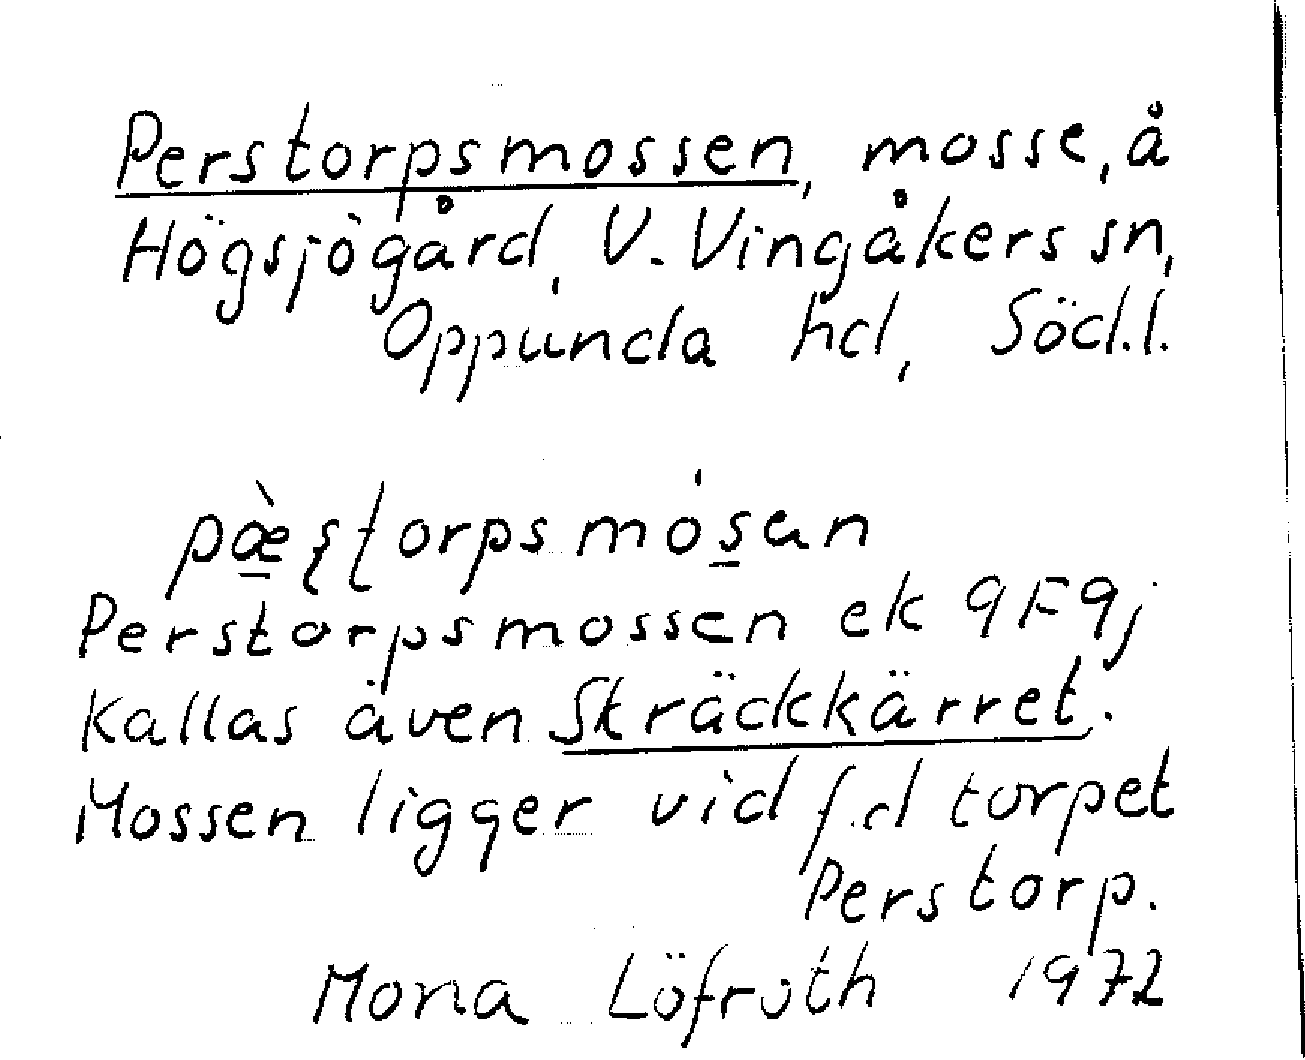 Perstorpsmossen, mosse, å
Högsjögård, V. Vingåkers sn,
Oppunda hd, Södl.l.
Perstorpsmossen ek 9F9j
Kallas även Sträckkärret.
Mossen ligger vid f.d torpet
Perstorp.
Mona Löfroth 1972